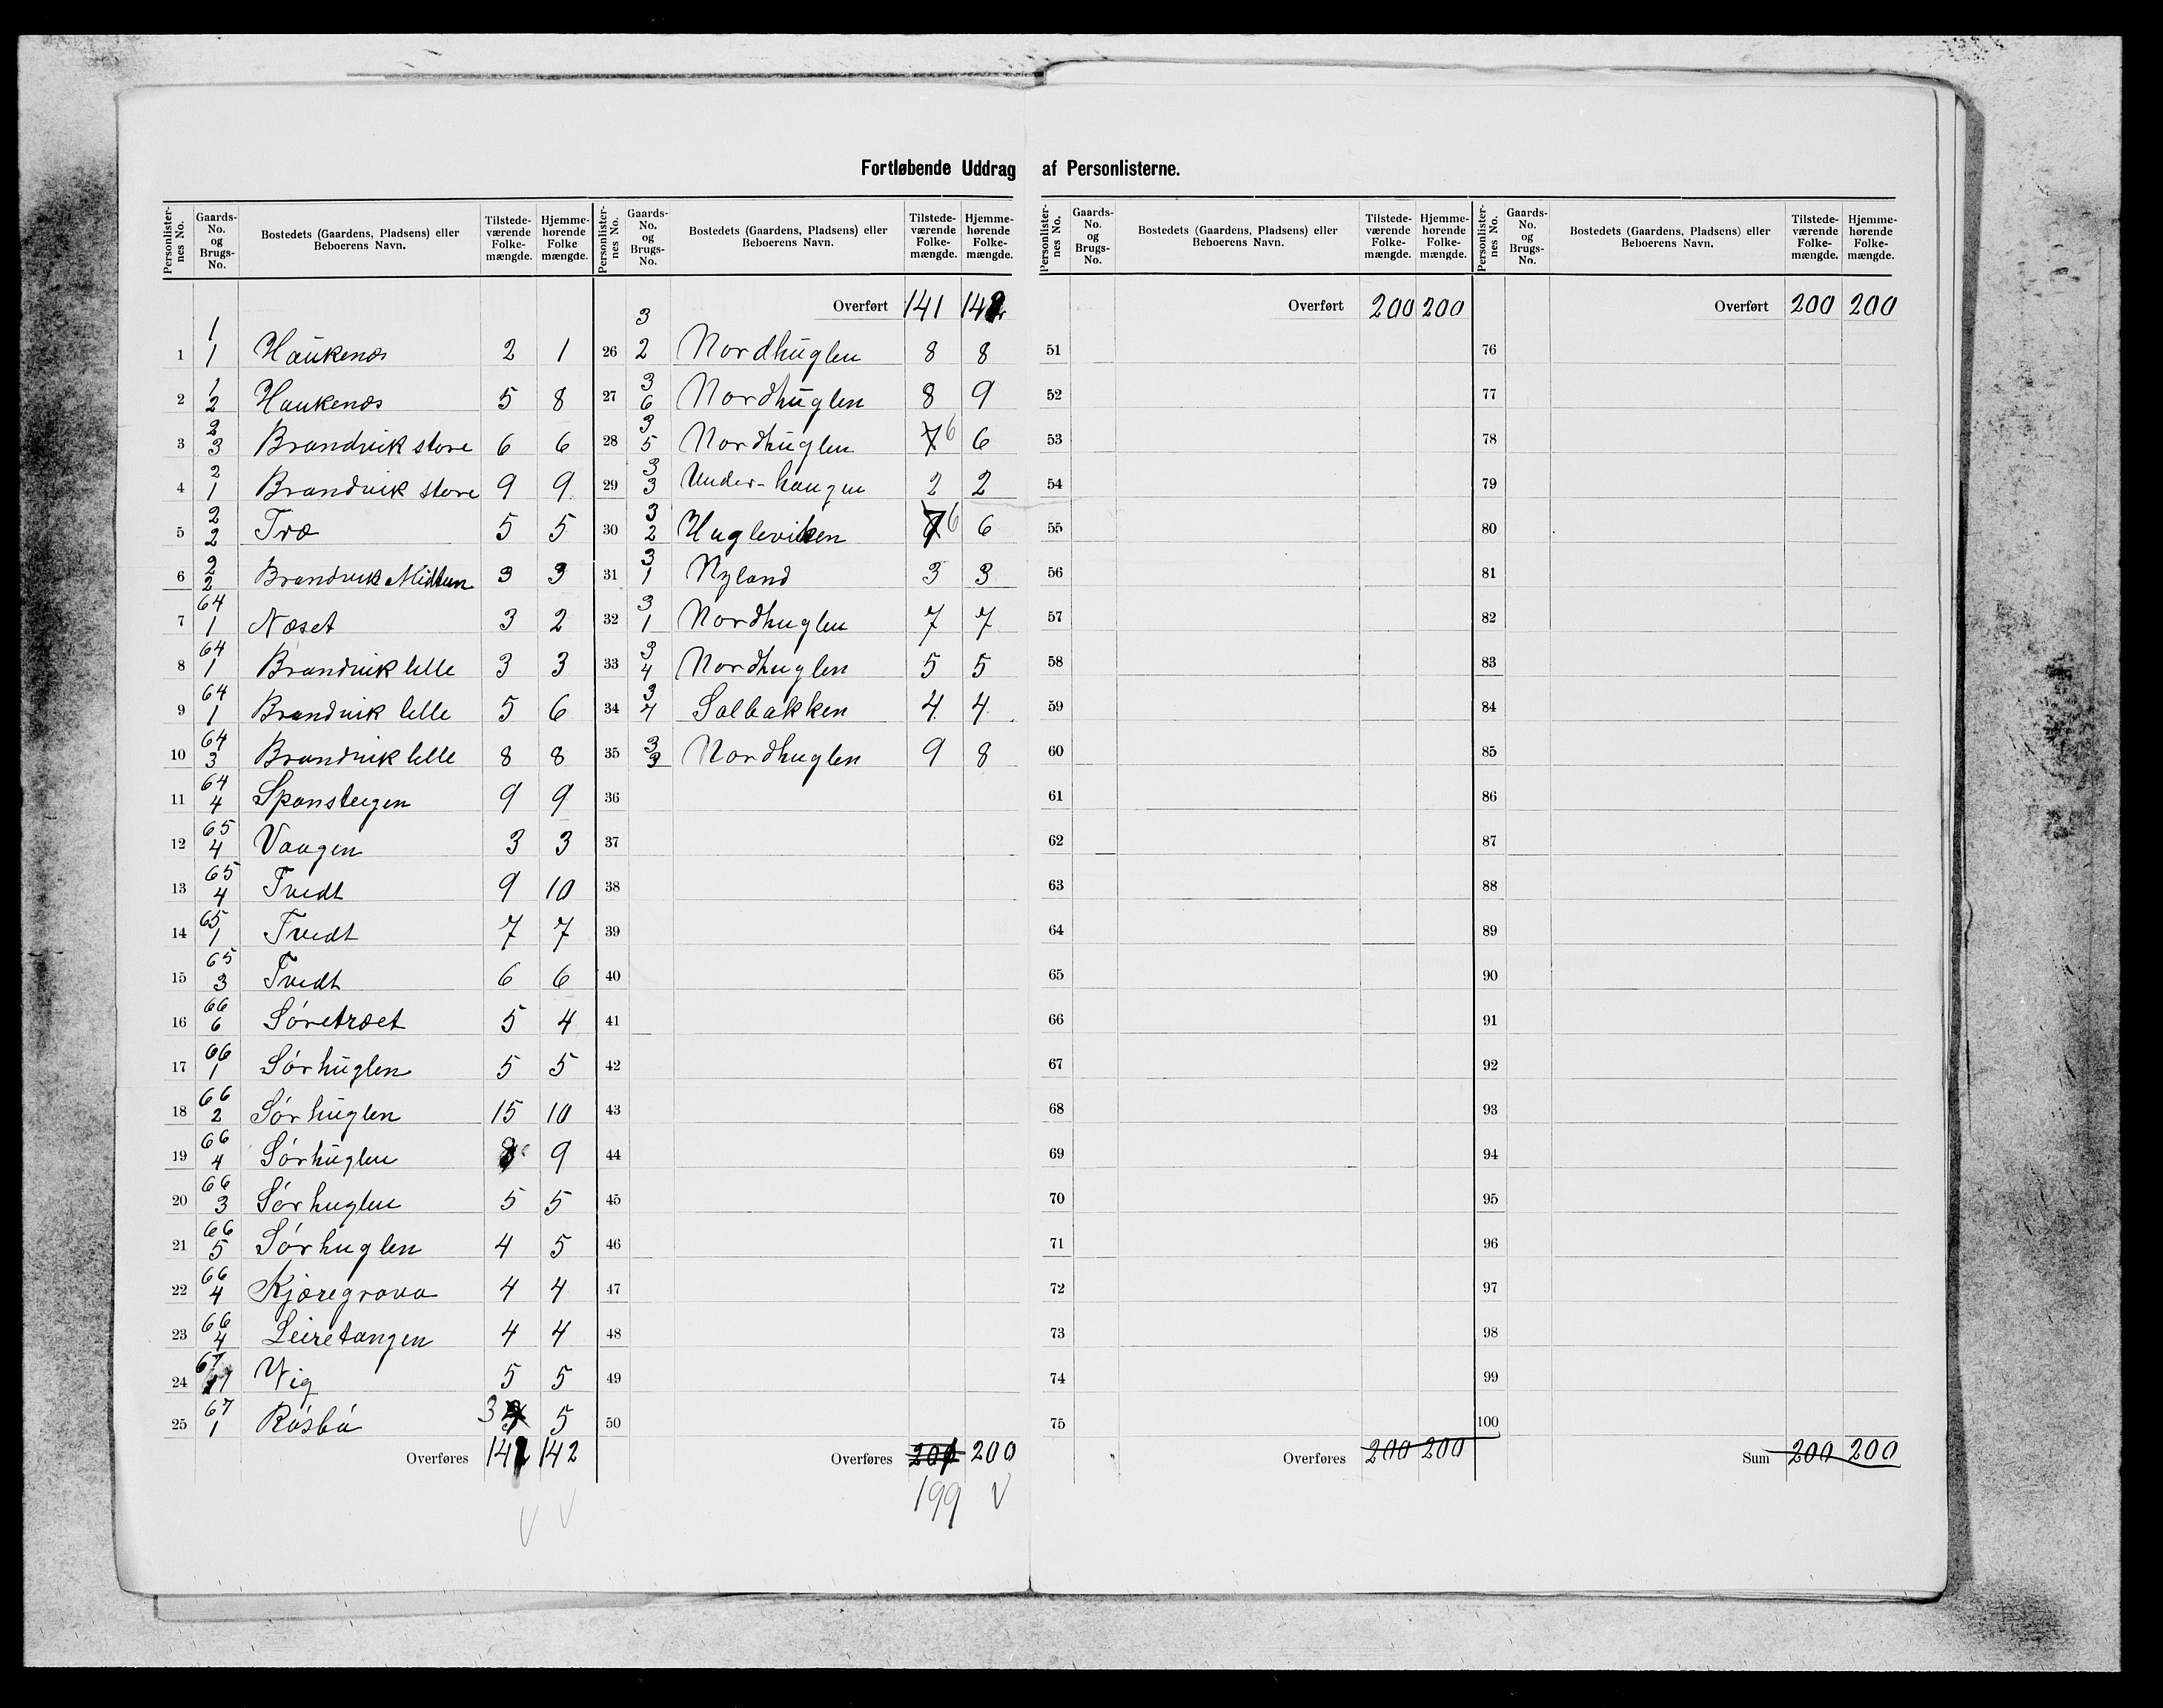 Fortløbende Uddrag af Personlisterne.
Personlister-nes No. | Gaards-No. og Brugs-No. | Bostedets (Gaardens, Pladsens) eller Beboerens Navn. | Tilstede-værende Folke-mængde. | Hjemme-hørende Folke mængde.
1 1/1 Haukenæs 2 1
2 1/2 Haukenæs 5 8
3 2/3 Brandvik store 6 6
4 2/1 Brandvik store 9 9
5 2/2 Træ 5 5
6 2/2 Brandvik Midtun 3 3
7 64/1 Næset 3 2
8 64/1 Brandvik lille 3 3
9 64/1 Brandvik lille 5 6
10 64/3 Brandvik lille 8 8
11 64/4 Spansteigen 9 9
12 65/4 Vaagen 3 3
13 65/4 Tvedt 9 10
14 65/1 Tvedt 7 7
15 65/3 Tvedt 6 6
16 66/6 Søretræet 5 4
17 66/1 Sørhuglen 5 5
18 66/2 Sørhuglen 15 10
19 66/4 Sørhuglen 8 9
20 66/3 Sørhuglen 5 5
21 66/5 Sørhuglen 4 5
22 66/4 Kjæregrava 4 4
23 66/4 Leiretangen 4 4
24 67/1 Vig 5 5
25 67/1 Røsbø 3 5
Overføres 142 142
Personlister-nes No. | Gaards-No. og Brugs-No. | Bostedets (Gaardens, Pladsens) eller Beboerens Navn. | Tilstede-værende Folke-mængde. | Hjemme-hørende Folke-mængde.
Overført 141 142
26 3/2 Nordhuglen 8 8
27 3/6 Nordhuglen 8 9
28 3/5 Nordhuglen 7 6 6
29 3/3 Under-haugen 2 2
30 3/2 Hugleviken 7 6 6
31 3/1 Nyland 3 3
32 3/1 Nordhuglen 7 7
33 3/4 Nordhuglen 5 5
34 3/7 Solbakken 4 4
35 3/3 Nordhuglen 9 8
36
37
38
39
40
41
42
43
44
45
46
47
48
49
50
Overføres 201 200
199 V
Personlister-nes No. | Gaards-No. og Brugs-No. | Bostedets (Gaardens, Pladsens) eller Beboerens Navn. | Tilstede-værende Folke-mængde. | Hjemme-hørende Folke-mængde.
Overført 200 200
51
52
53
54
55
56
57
58
59
60
61
62
63
64
65
66
67
68
69
70
71
72
73
74
75
Overføres 200 200
Personlister-nes No. | Gaards-No. og Brugs-No. | Bostedets (Gaardens, Pladsens) eller Beboerens Navn. | Tilstede-værende Folke-mængde. | Hjemme-hørende Folke-mængde.
Overført 200 200
76
77
78
79
80
81
82
83
84
85
86
87
88
89
90
91
92
93
94
95
96
97
98
99
100
Sum 200 200